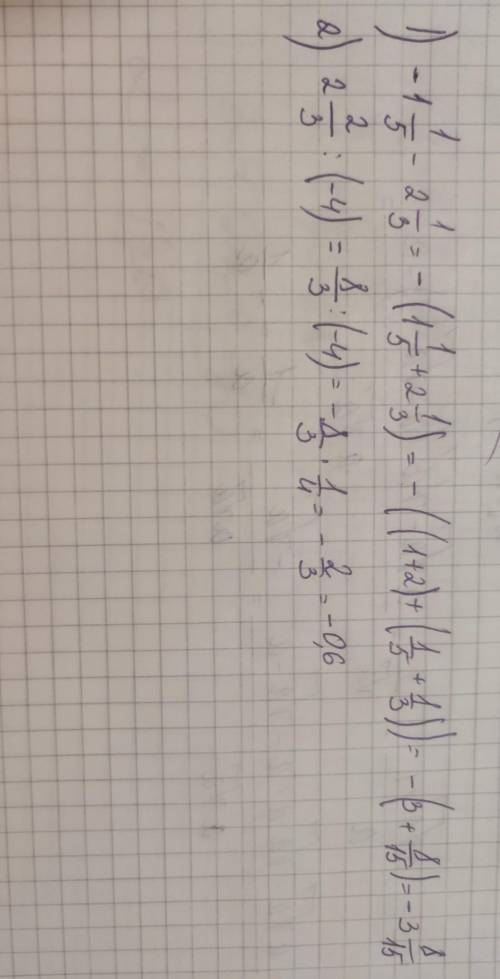 1) -1 1/5 - 2 1/3 = -(1 1/5 + 2 1/3) = -((1+2)+(1/5 + 1/3)) = -(3 + 8/15) = -3 8/15
2) 2 2/3 : (-4) = 8/3 : (-4) = -8/3 · 1/4 = -2/3 = -0,6